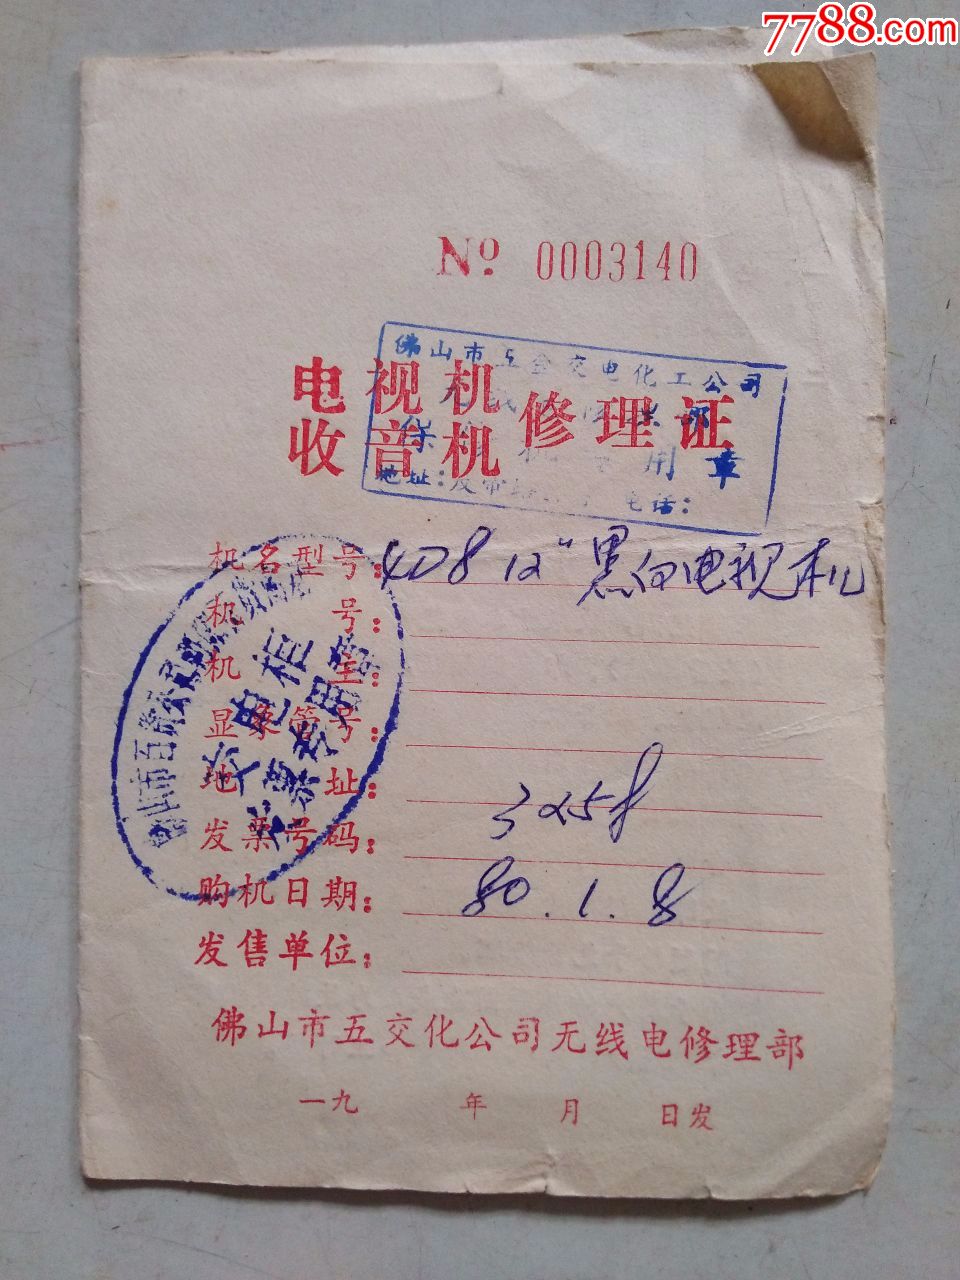 7788.com
No 0003140
佛山市五金交电化工公司
电视机
收音机
修理证
保
用章
地址: 电话:
机名型号: 4D8 12" 黑白电视机
机 号:
机 主:
显象管号:
地 址:
发票号码: 3258
购机日期: 80.1.8
发售单位:
佛山市五交化公司无线电修理部
一九 年 月 日发